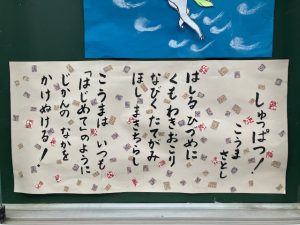 しゅっぱつ!
こうま さとし
はしる ひづめに
くも わきおこり
なびく たてがみ
ほし まきちらし
こうまは いつも
「はじめて」のように
じかんの なかを
かけぬける!